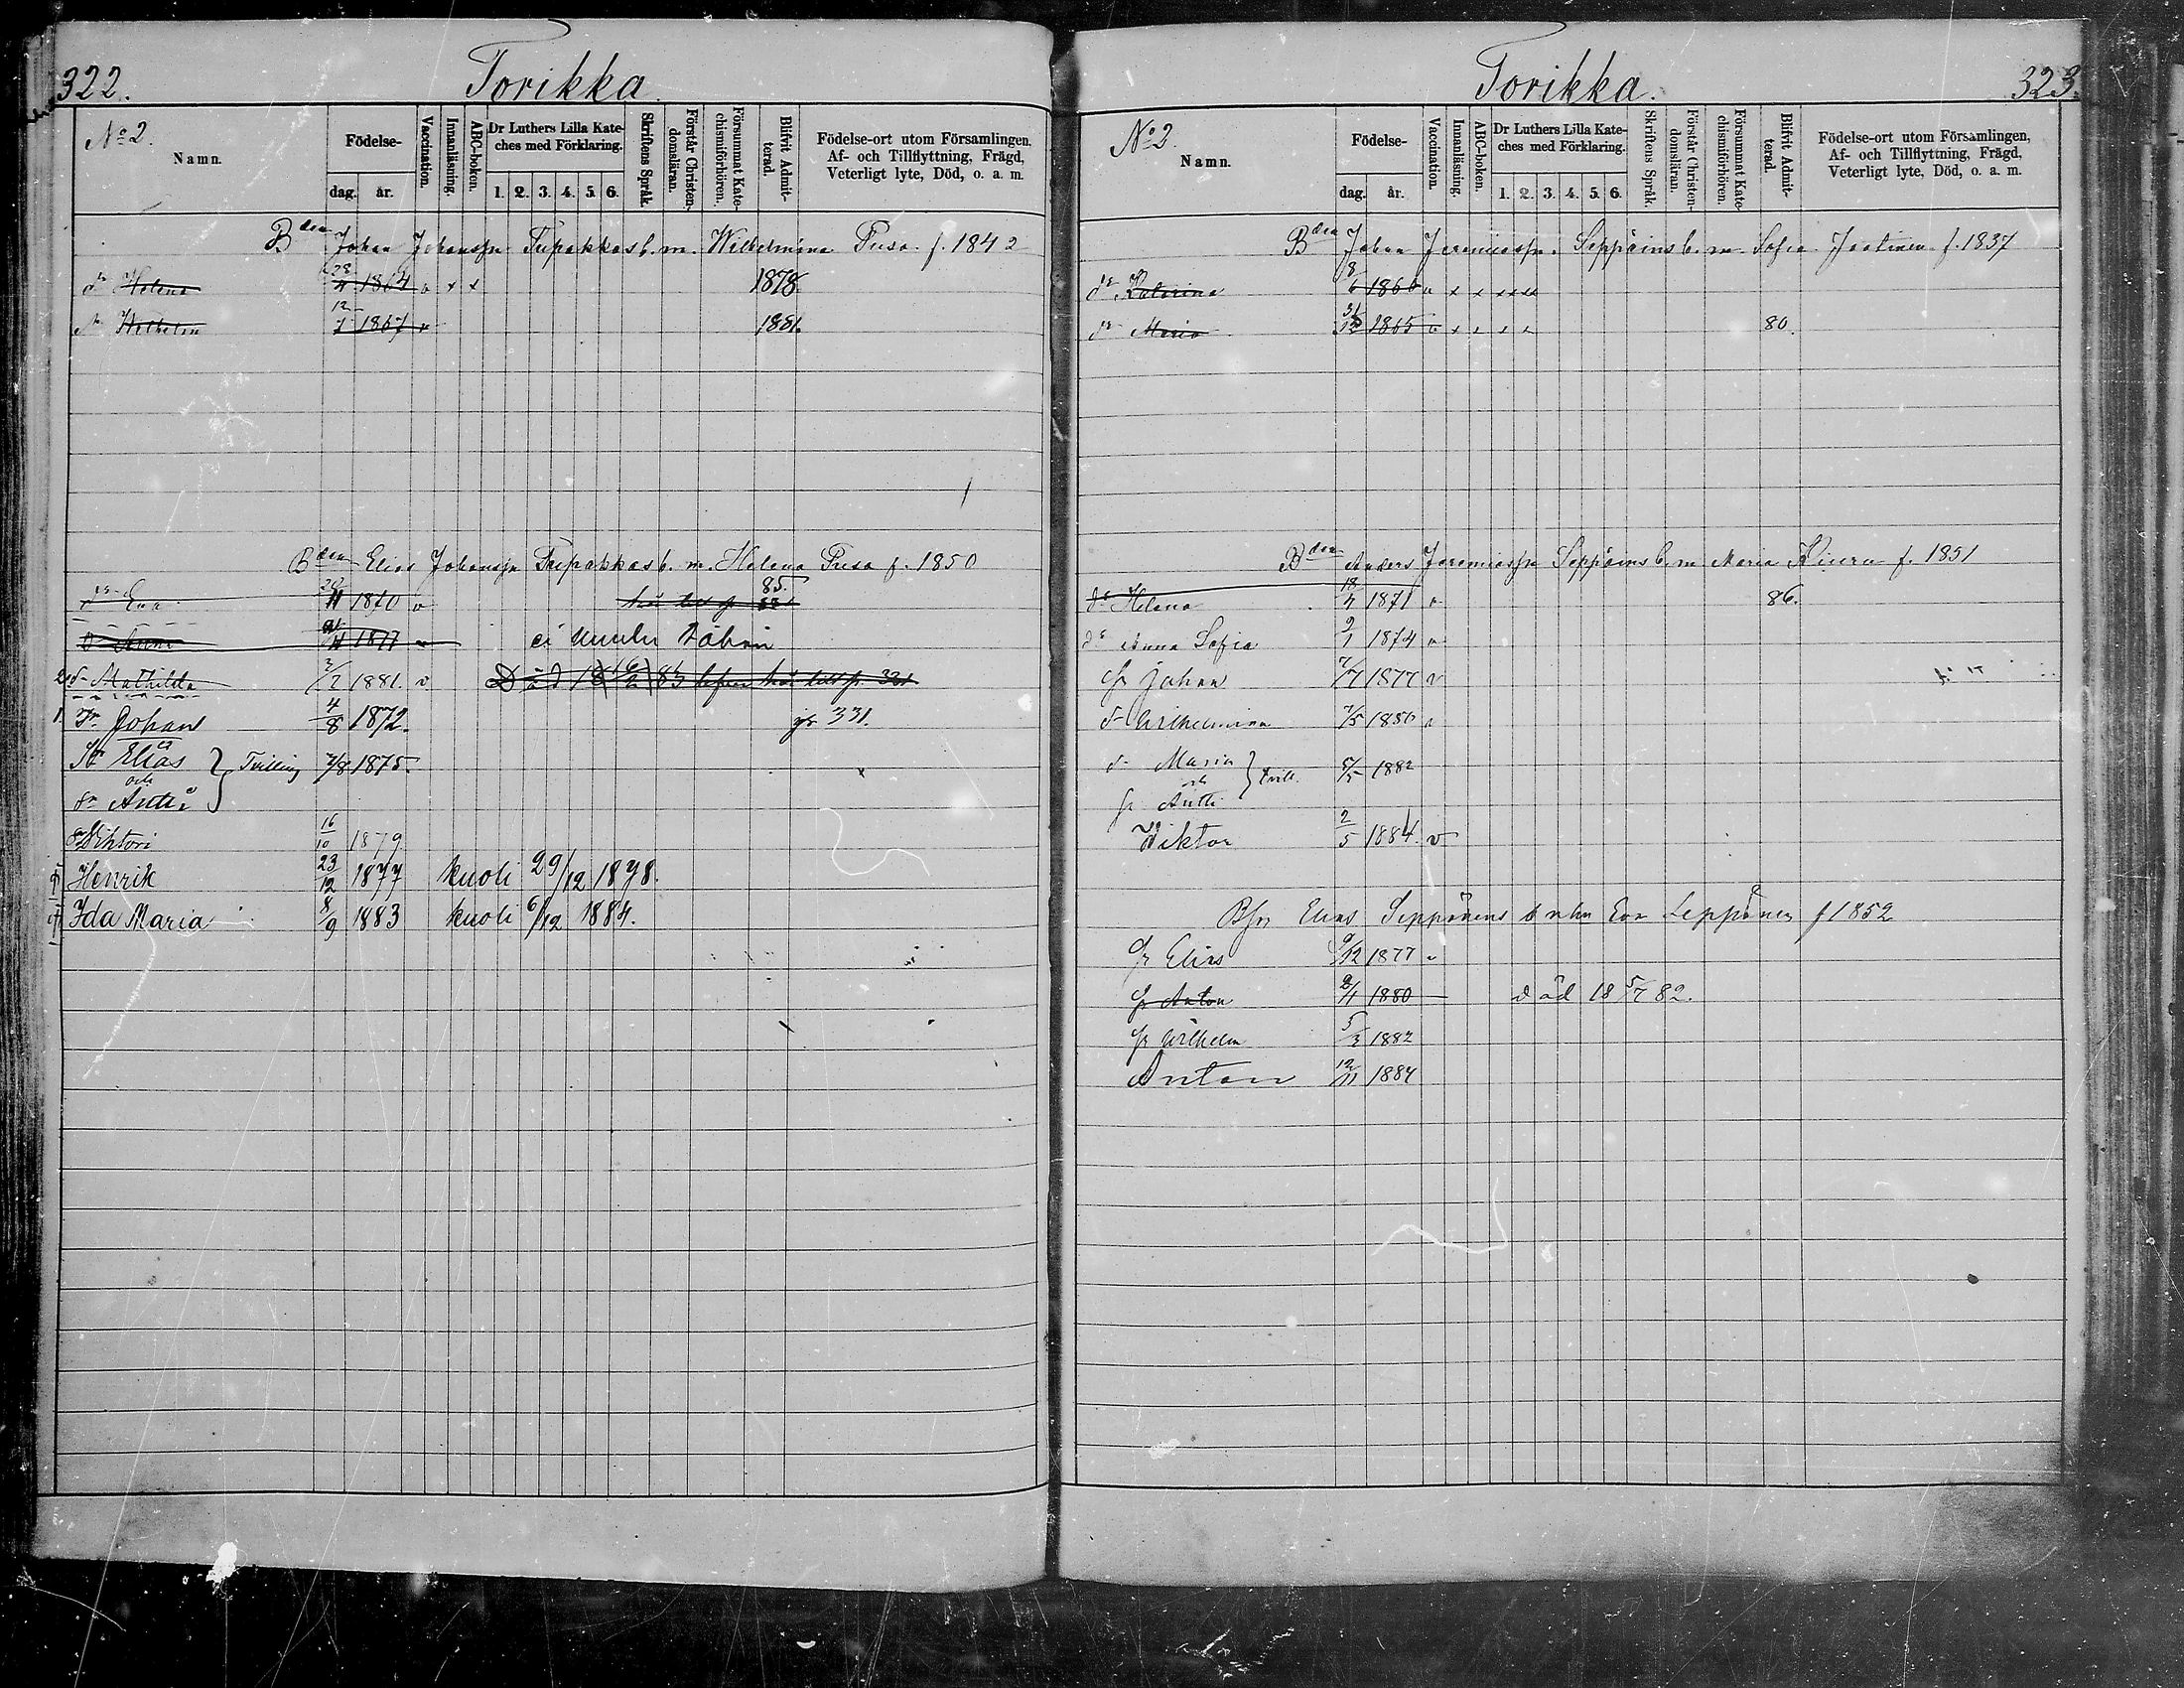 322.
Torikka.
No 2.
Namn.
Födelse-
dag. år.
Vaccination.
Innanläsning.
ABC-boken.
Dr Luthers Lilla Kate-
ches med Förklaring.
1. 2. 3. 4. 5. 6.
Skriftens Språk.
Förstår Christen-
domsläran.
Försummat Kate-
chismiförhören.
Blifvit Admit-
terad.
Födelse-ort utom Församlingen,
Af- och Tillflyttning, Frägd,
Veterligt lyte, Död, o. a. m.
Bden Johan Johansson Tupakkas b. m. Wilhelmina Pusa f. 1842
dr Helena 28/11 1864 v x x 1878.
Wilhelm 12/7 1867 v 1881.
Bden Elias Johanssn Tupakkas b. m. Helena Pusa f. 1850
dr Eva 20/11 1870 v 85.
dr Anna 1877 v ei
2 dr Mathilda 3/2 1881. v Död 18 83
1. Sn Johan 4/8 1872. 331.
Sn Elias
och
Sn Antti
Tvilling 7/8 1875.
Sn Viktori 16/10 1879
Henrik 23/12 1877 kuoli 29/12 1878.
Ida Maria 8/9 1883 kuoli 6/12 1884.
Torikka.
323.
No 2.
Namn.
Födelse-
dag. år.
Vaccination.
Innanläsning.
ABC-boken.
Dr Luthers Lilla Kate-
ches med Förklaring.
1. 2. 3. 4. 5. 6.
Skriftens Språk.
Förstår Christen-
domsläran.
Försummat Kate-
chismiförhören.
Blifvit Admit-
terad.
Födelse-ort utom Församlingen,
Af- och Tillflyttning, Frägd,
Veterligt lyte, Död, o. a. m.
Bden Johan Jeremiassn. Seppäins b. m. Sofia Jaatinen f. 1837
dr Katarina 8/6 1860 v x x x x x x
dr Maria 31/12 1865 v x x x x 80.
Bden Anders Jeremiassn Seppäins b. m Maria Kiuru f. 1851
dr Helena 18/4 1871 v 86.
dr Anna Sofia 9/1 1874 v
Sn Johan 7/7 1877 v
dr Wilhelmina 7/5 1880 v
dr Maria
och
Sn Antti
tvill. 5/5 1882
Viktor 2/5 1884. v
Bsn Elias Seppänens b Eva Leppänen f 1852
Sn Elias 9/12 1877 v
Sn Anton 2/1 1880 död 18 5/7 82.
Sn Wilhelm 5/3 1882
Anton 12/11 1884